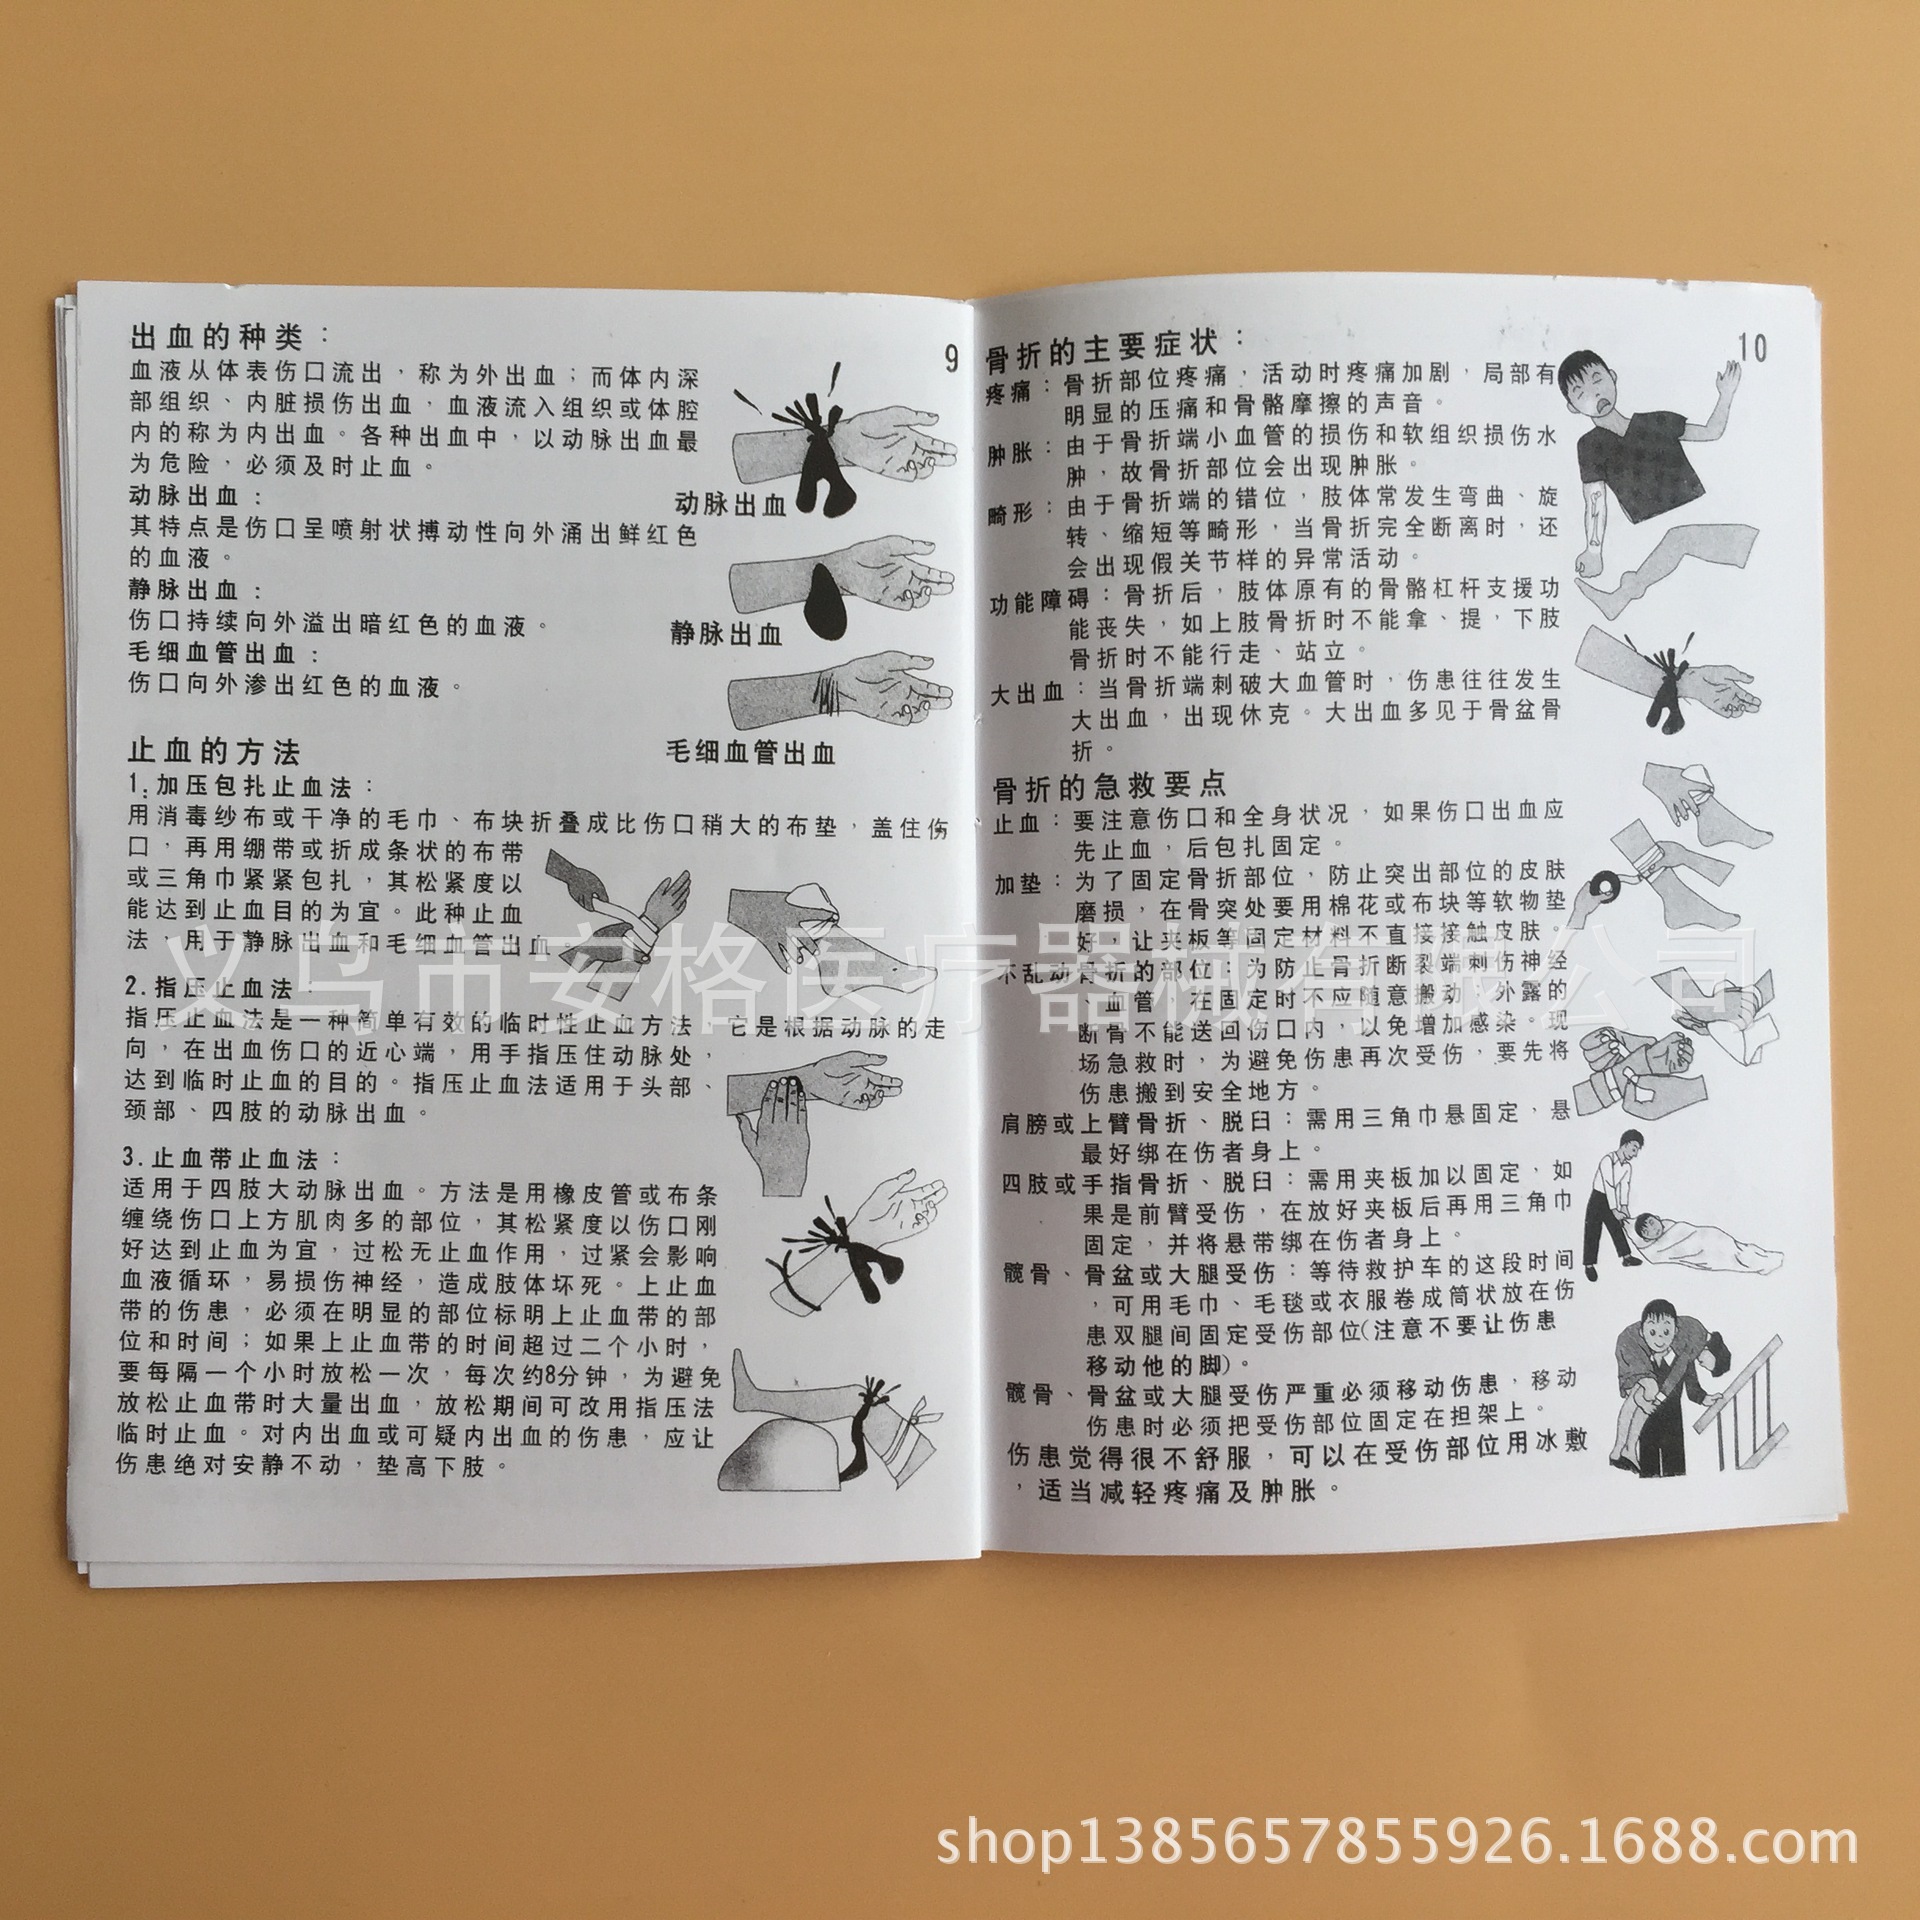 出血的种类：
9
血液从体表伤口流出，称为外出血；而体内深
部组织、内脏损伤出血，血液流入组织或体腔
内的称为内出血。各种出血中，以动脉出血最
为危险，必须及时止血。
动脉出血：
动脉出血
其特点是伤口呈喷射状搏动性向外涌出鲜红色
的血液。
静脉出血：
伤口持续向外溢出暗红色的血液。
静脉出血
毛细血管出血：
伤口向外渗出红色的血液。
毛细血管出血
止血的方法
1.加压包扎止血法：
用消毒纱布或干净的毛巾、布块折叠成比伤口稍大的布垫，盖住伤
口，再用绷带或折成条状的布带
或三角巾紧紧包扎，其松紧度以
能达到止血目的为宜。此种止血
法，用于静脉出血和毛细血管出血。
2.指压止血法：
指压止血法是一种简单有效的临时性止血方法 它是根据动脉的走
向，在出血伤口的近心端，用手指压住动脉处，
达到临时止血的目的。指压止血法适用于头部、
颈部、四肢的动脉出血。
3.止血带止血法：
适用于四肢大动脉出血。方法是用橡皮管或布条
缠绕伤口上方肌肉多的部位，其松紧度以伤口刚
好达到止血为宜，过松无止血作用，过紧会影响
血液循环，易损伤神经，造成肢体坏死。上止血
带的伤患，必须在明显的部位标明上止血带的部
位和时间；如果上止血带的时间超过二个小时，
要每隔一个小时放松一次，每次约8分钟，为避免
放松止血带时大量出血，放松期间可改用指压法
临时止血。对内出血或可疑内出血的伤患，应让
伤患绝对安静不动，垫高下肢。
骨折的主要症状：
10
疼痛：骨折部位疼痛，活动时疼痛加剧，局部有
明显的压痛和骨骼摩擦的声音。
肿胀：由于骨折端小血管的损伤和软组织损伤水
肿，故骨折部位会出现肿胀。
畸形：由于骨折端的错位，肢体常发生弯曲、旋
转、缩短等畸形，当骨折完全断离时，还
会出现假关节样的异常活动。
功能障碍：骨折后，肢体原有的骨骼杠杆支援功
能丧失，如上肢骨折时不能拿、提，下肢
骨折时不能行走、站立。
大出血：当骨折端刺破大血管时，伤患往往发生
大出血，出现休克。大出血多见于骨盆骨
折。
骨折的急救要点
止血：要注意伤口和全身状况，如果伤口出血应
先止血，后包扎固定。
加垫：为了固定骨折部位，防止突出部位的皮肤
磨损，在骨突处要用棉花或布块等软物垫
好，让夹板等固定材料不直接接触皮肤。
不乱动骨折的部位：为防止骨折断裂端刺伤神经
、血管，在固定时不应随意搬动；外露的
断骨不能送回伤口内，以免增加感染。现
场急救时，为避免伤患再次受伤，要先将
伤患搬到安全地方。
肩膀或上臂骨折、脱臼：需用三角巾悬固定，悬
最好绑在伤者身上。
四肢或手指骨折、脱臼：需用夹板加以固定，如
果是前臂受伤，在放好夹板后再用三角巾
固定，并将悬带绑在伤者身上。
髋骨、骨盆或大腿受伤：等待救护车的这段时间
，可用毛巾、毛毯或衣服卷成筒状放在伤
患双腿间固定受伤部位(注意不要让伤患
移动他的脚)。
髋骨、骨盆或大腿受伤严重必须移动伤患，移动
伤患时必须把受伤部位固定在担架上。
伤患觉得很不舒服，可以在受伤部位用冰敷
，适当减轻疼痛及肿胀。
义乌市安格医疗器械有限公司
shop1385657855926.1688.com